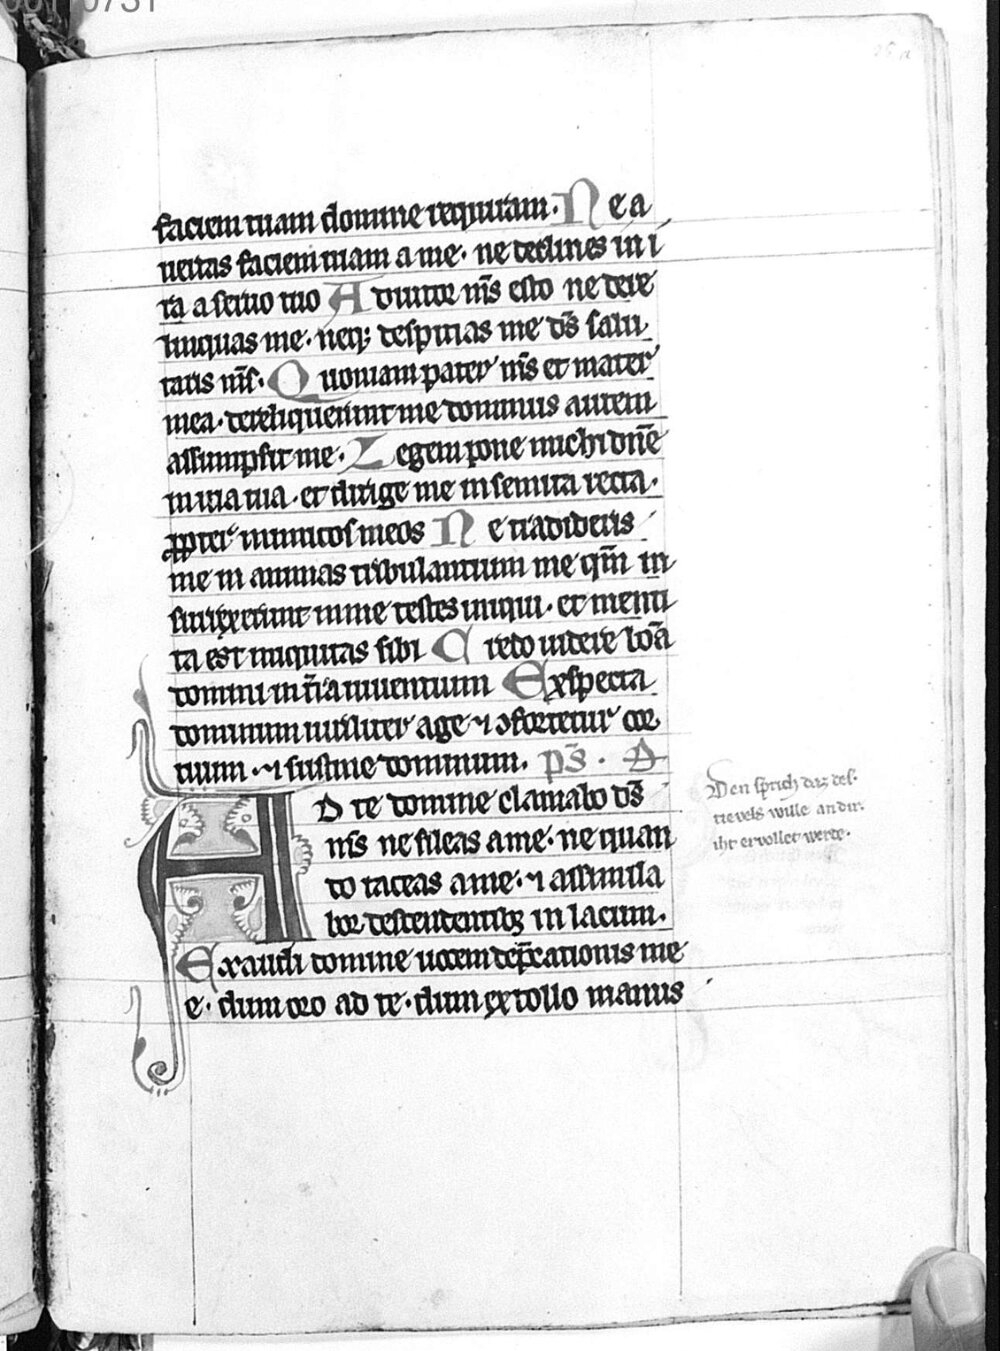 faciem tuam domine requiram. Ne a
uertas faciem tuam a me. ne declines in i
ra a seruo tuo Adiutor m̄s esto ne dere
linquas me. neq; despicias me d̄s salu
taris m̄s. Quoniam pater m̄s et mater
mea. dereliquerunt me dominus autem
assumpsit me. Legem pone michi dn̄e
in uia tua. et dirige me in semita recta.
ꝓpter inimicos meos Ne tradideris
me in animas tribulantium me qm̄ in
surrexerunt in me testes iniqui. et menti
ta est iniquitas sibi Credo uidere bōa
domini in t̄ra uiuentium Exspecta
dominum uiriliter age ⁊ ↄfortetur cor
tuum. ⁊ sustine dominum. ps̄. D
AD te domine clamabo d̄s
m̄s ne sileas a me. ne quan
do taceas a me. ⁊ assimila
bor descendentibꝫ in lacum.
Exaudi domine uocem dep̄cationis me
e. dum oro ad te. dum extollo manus
Den sprich daz des.
tievels wille an dir.
iht ervollet werde.